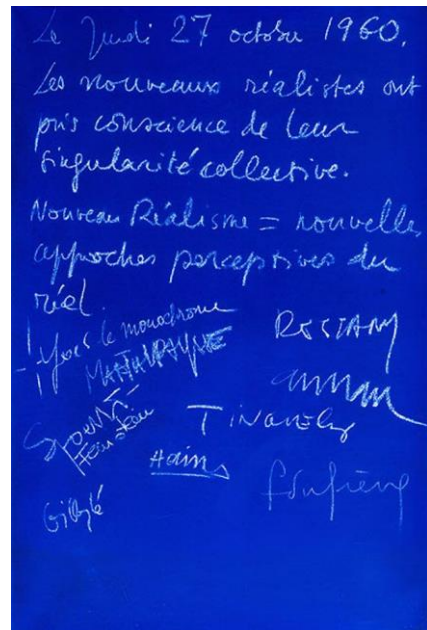 Le Jeudi 27 octobre 1960.
Les nouveaux réalistes ont
pris conscience de leur
singularité collective.
Nouveau Réalisme = nouvelles
approches perceptives du
réel.
Yves le monochrome
RESTANY
MARTIAL RAYSSE
arman
SPOERRI
TINGUELY
Hains
Dufrêne
Villeglé